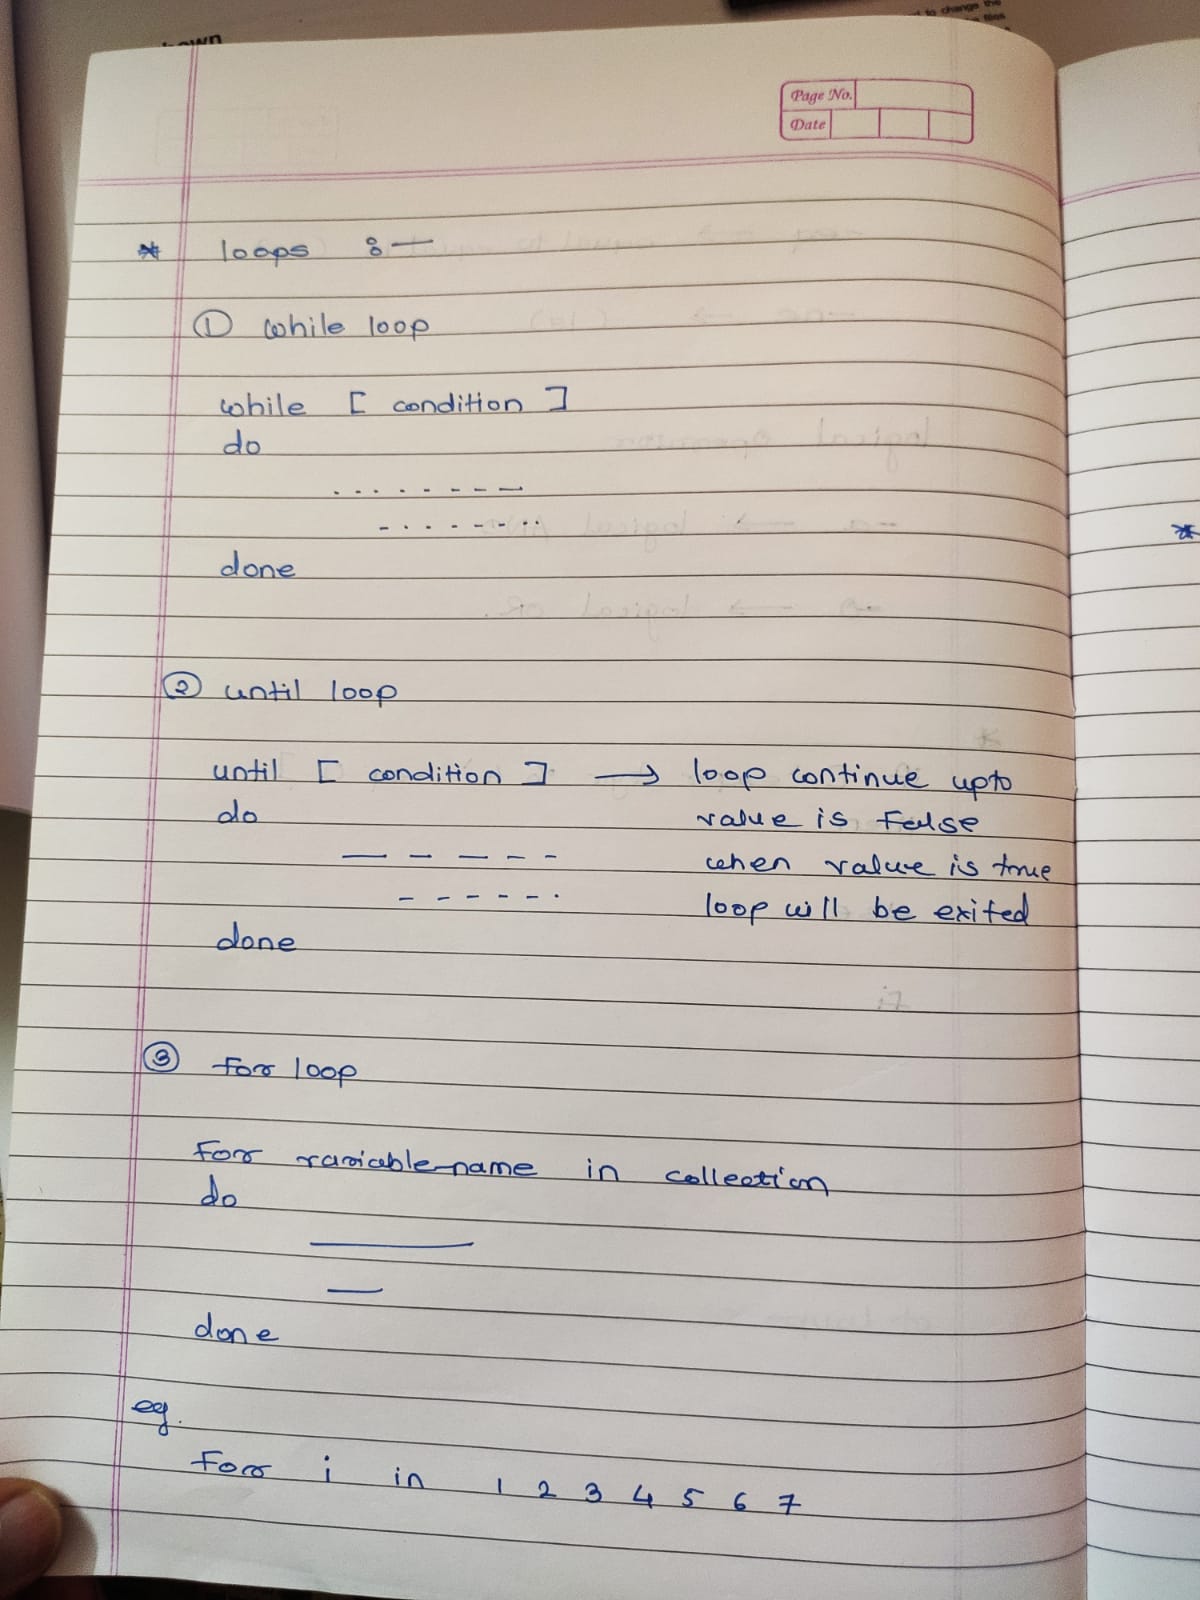 own
to change the
Page No.
Date
* loops :-
① while loop
while [ condition ]
do
........---
-......---..
done
② until loop
until [ condition ] → loop continue upto
do value is false
— - — - - when value is true
- - - - - - . loop will be exited
done
③ for loop
for variable-name in collection
do
———
—
done
eg.
for i in 1 2 3 4 5 6 7